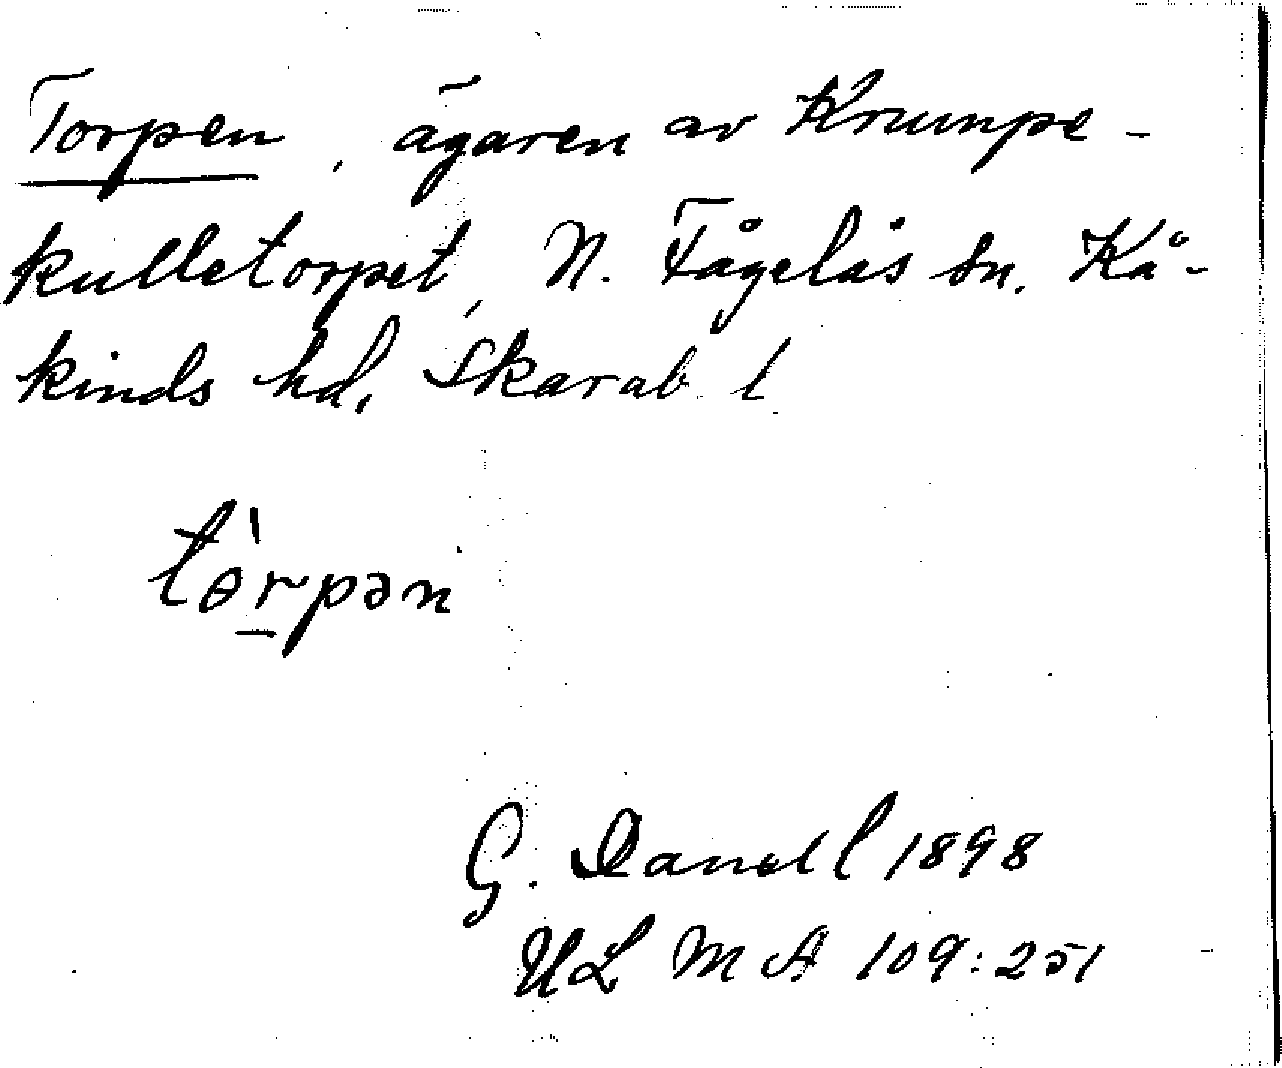 Torpen, ägaren av Krumpe-
kulletorpet, N. Fågelås sn. Kå-
kinds hd, Skarab l
tòrpən
G. Danell 1898
ULMA 109:251